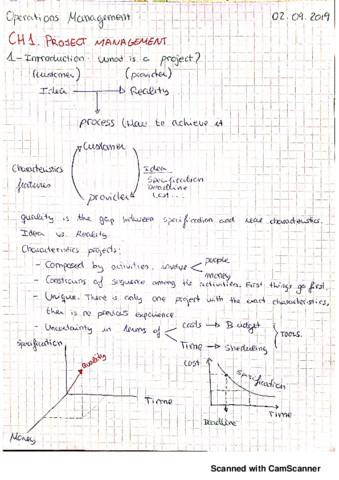 Operations Management 02.09.2019
CH1. PROJECT MANAGEMENT
1- Introduction. What is a project?
(customer) (provider)
Idea Reality
process (How to achieve it
Customer
Characteristics
features
Idea
Specification
Deadline
Cost...
provider
quality is the gap between specification and real characteristics.
Idea vs. Reality
Characteristics projects:
- Composed by activities, involve people
money
- Constrains of sequence among the activities. First things go first.
- Unique. There is only one project with the exact characteristics,
then is no previous experience.
- Uncertainty in terms of costs → Budget
Time → Sheduling
TOOLS.
Specification
Quality
Time
Money
COST
Specification
Time
Deadline
Scanned with CamScanner